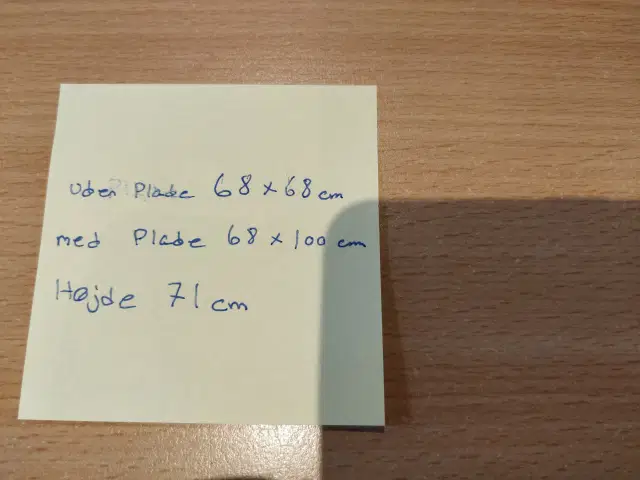 uden Plade 68 x 68 cm
med Plade 68 x 100 cm
Højde 71 cm